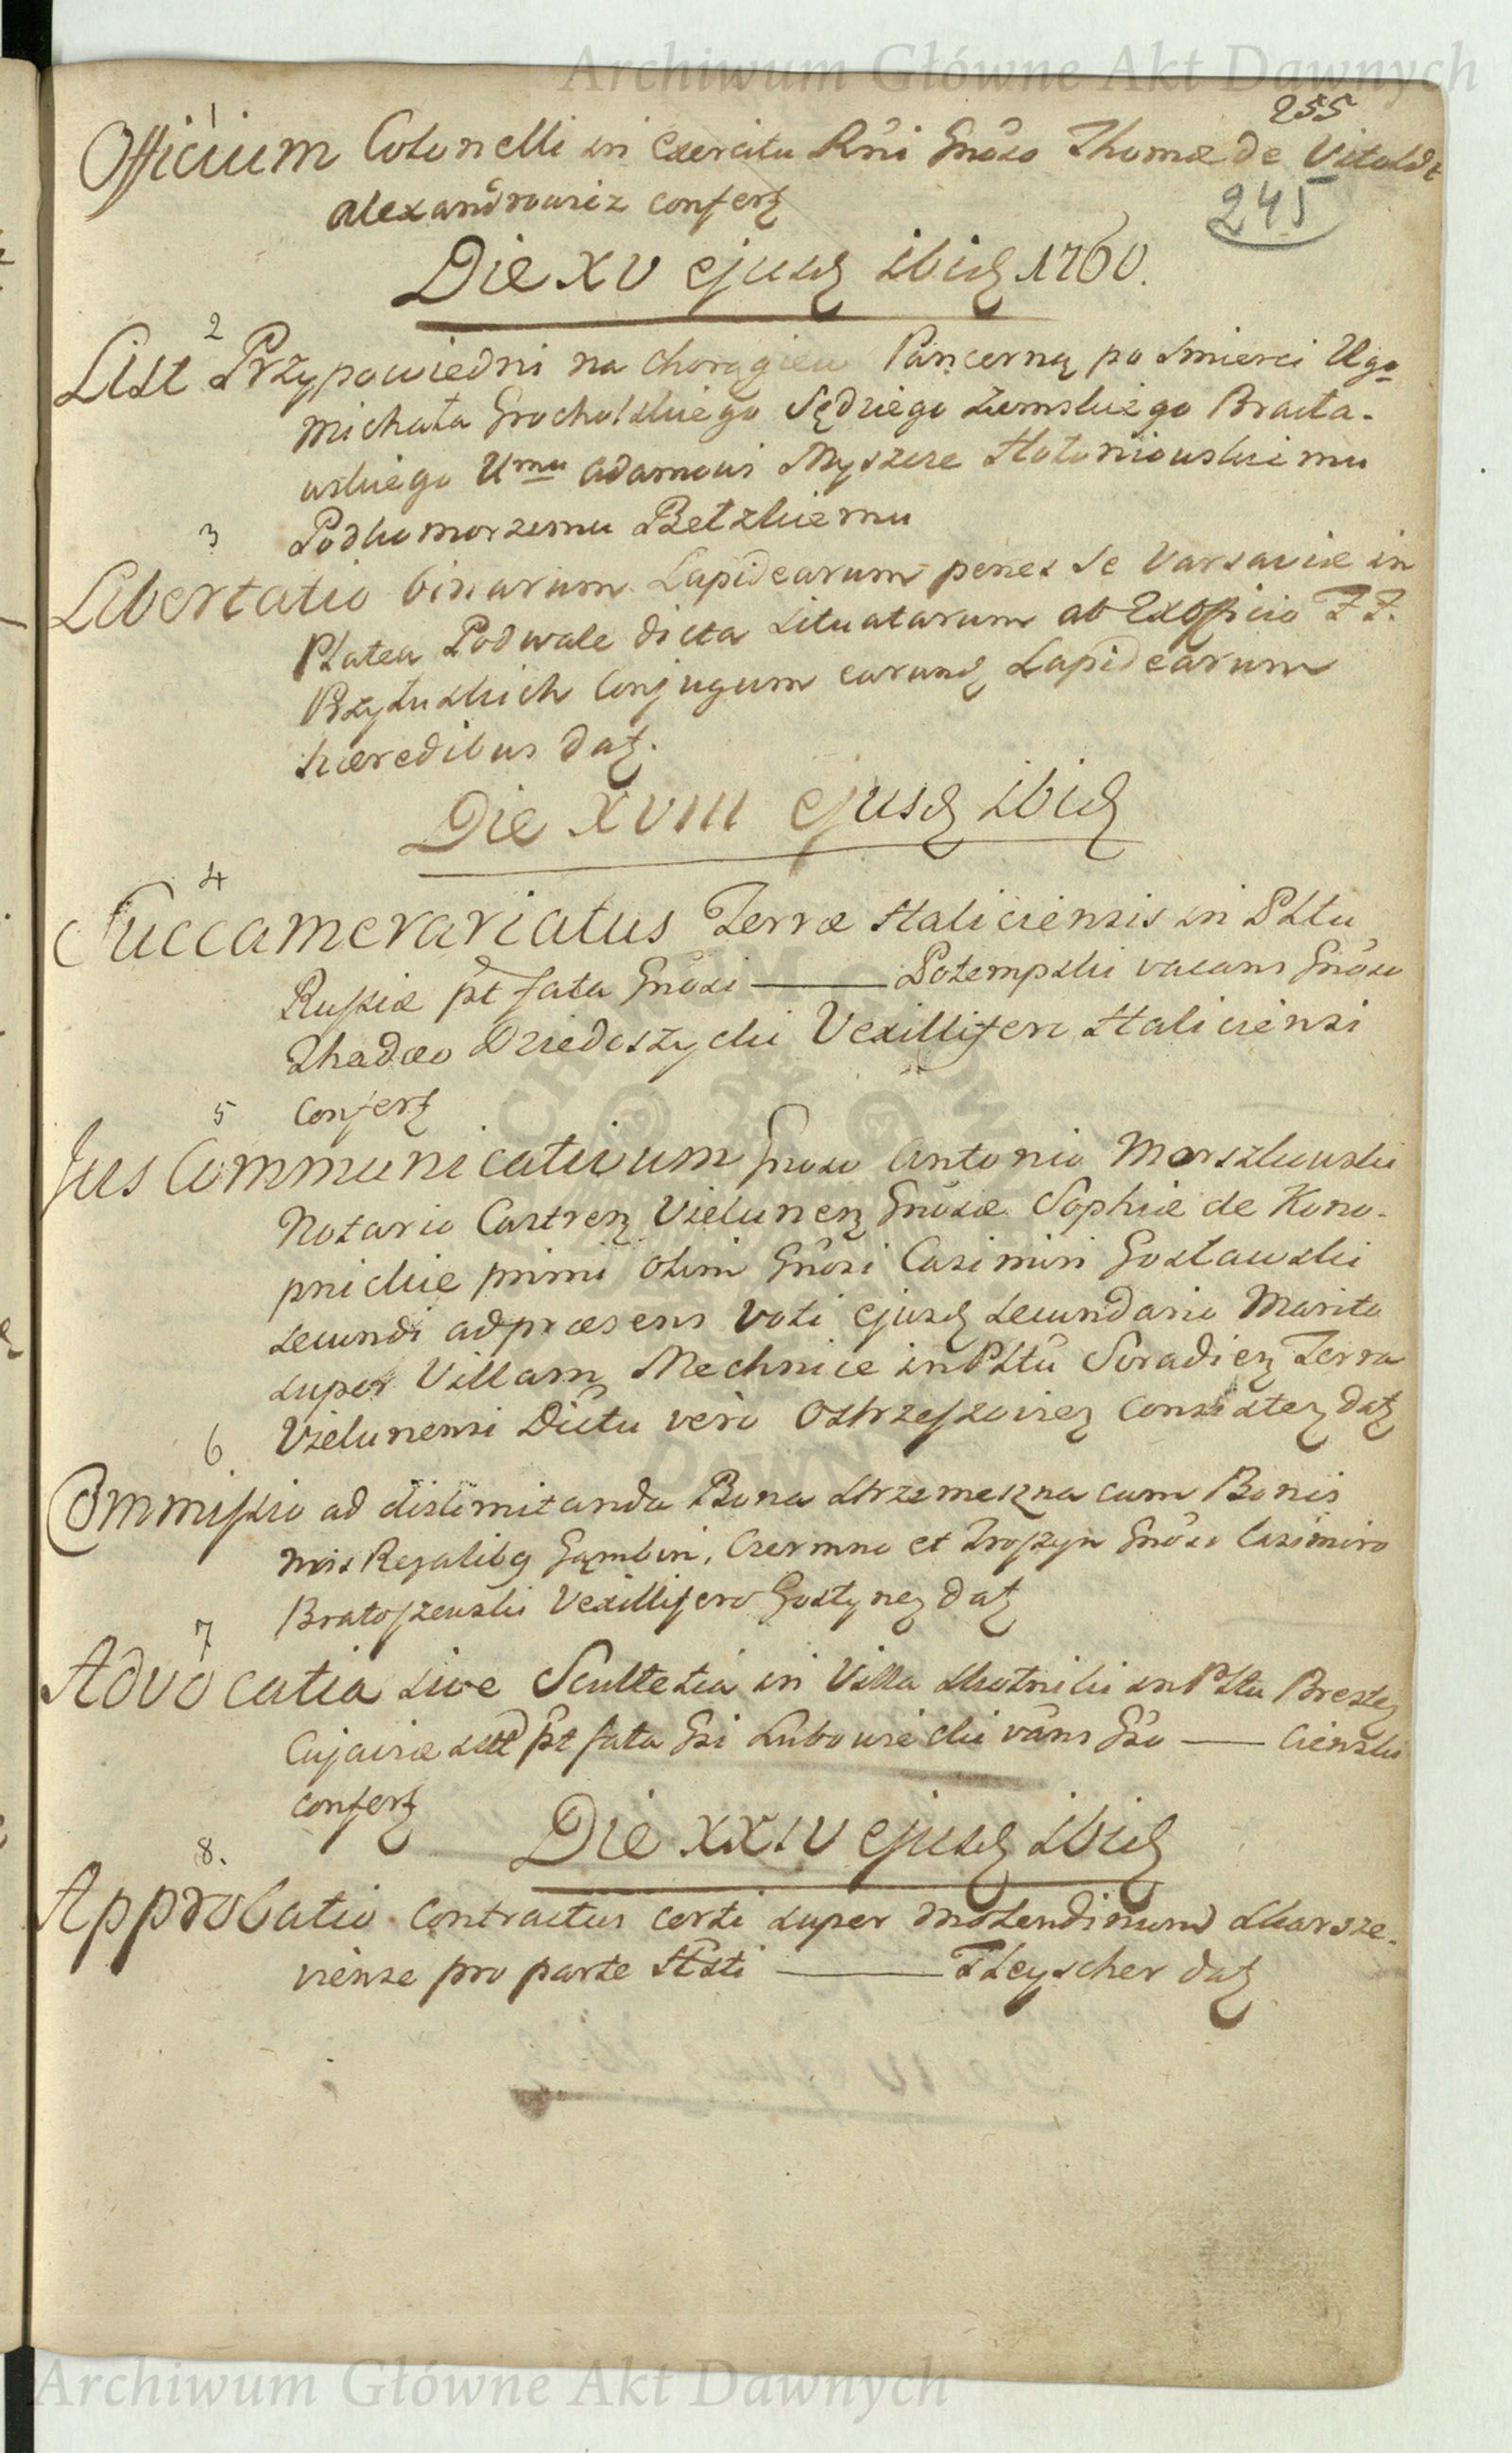 Archiwum Główne Akt Dawnych
255
1
Officium Colonelli in Exercitu Rñi Gnõso Thomæ de Vitoldt
245
Alexandrowicz conferꝫ
Die XV ejusdꝫ ibidꝫ 1760.
2
List Przypowiedni na Chorągiew Pancerną po śmierci Ugo
Michała Grocholskiego Sędziego Ziemskiego Bracła-
wskiego Umu Adamowi Myszce Hołoniowskiemu
Podkomorzemu Bełzkiemu
3
Libertatio binarum Lapidearum penes se Varsaviæ in
Platea Podwale dicta situatarum ab Exofficio F F.
Przyłuskich Conjugum earundꝫ Lapidearum
hæredibus datꝫ.
Die XVIII ejusdꝫ ibidꝫ
4
Succamerariatus Terræ Haliciensis in Pltu
Russiæ pt fata Gnõsi ——— Potempski vacans Gnõso
Thadæo Dzieduszycki Vexillifero Haliciensi
Conferꝫ
5
Jus Communicativum Gnoso Antonio Morszkowski
Notario Castrenꝫ Vielunenꝫ Gnõsæ Sophiæ de Kono-
pnickie primi olim Gnõsi Casimiri Gosławski
secundi adpræsens voti ejusdꝫ secundario Marito
super Villam Mechnice in Pltũ Siradienꝫ Terra
Vielunensi Dictu vero Ostrzeszovienꝫ consistenꝫ datꝫ
6
Commissio ad dislimitanda Bona Strzemeszna cum Bonis
nris Regalibꝫ Gąmbin, Czermno et Troszyn Gnõso Casimiro
Bratoszewski Vexillifero Gostynenꝫ datꝫ
7
Advocatia sive Scultetia in Villa Słotniki in Pltu Brestenꝫ
Cujaviæ sita pt fata Gsi Lubowiecki vãns Gso —— Cienski
conferꝫ
Die XXIV ejusdꝫ ibidꝫ
8.
Approbatio Contractus certi super Molendinum Skarsze-
viense pro parte Hsti ——— Fleyscher datꝫ
Archiwum Główne Akt Dawnych